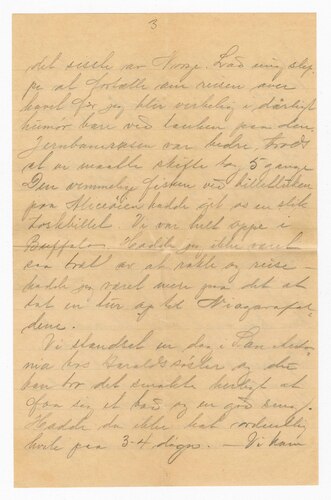 3
det sisste av Norge. Lad mig slip-
pe at fortælle om reisen over
havet for jeg blir virkelig i daarligt
humør bare ved tanken paa den.
Jernbanereisen var bedre, trods
at vi maatte skifte tog 5 gange
Den vemmelige fisken ved billetluken
paa                hadde git os en slik
        Vi var helt oppe i
Buffalo. Hadde jeg ikke været
saa træt av at                og reise -
hadde jeg været mere paa det at
tat en tur op til Niagarafal-
dene.
Vi standset en dag i
   hos Haralds søster og du
kan tro det smakte herligt at
faa sig et bad og en god seng.
Hadde da ikke hat ordentlig
hvile paa 3-4 døgn. — Vi kom